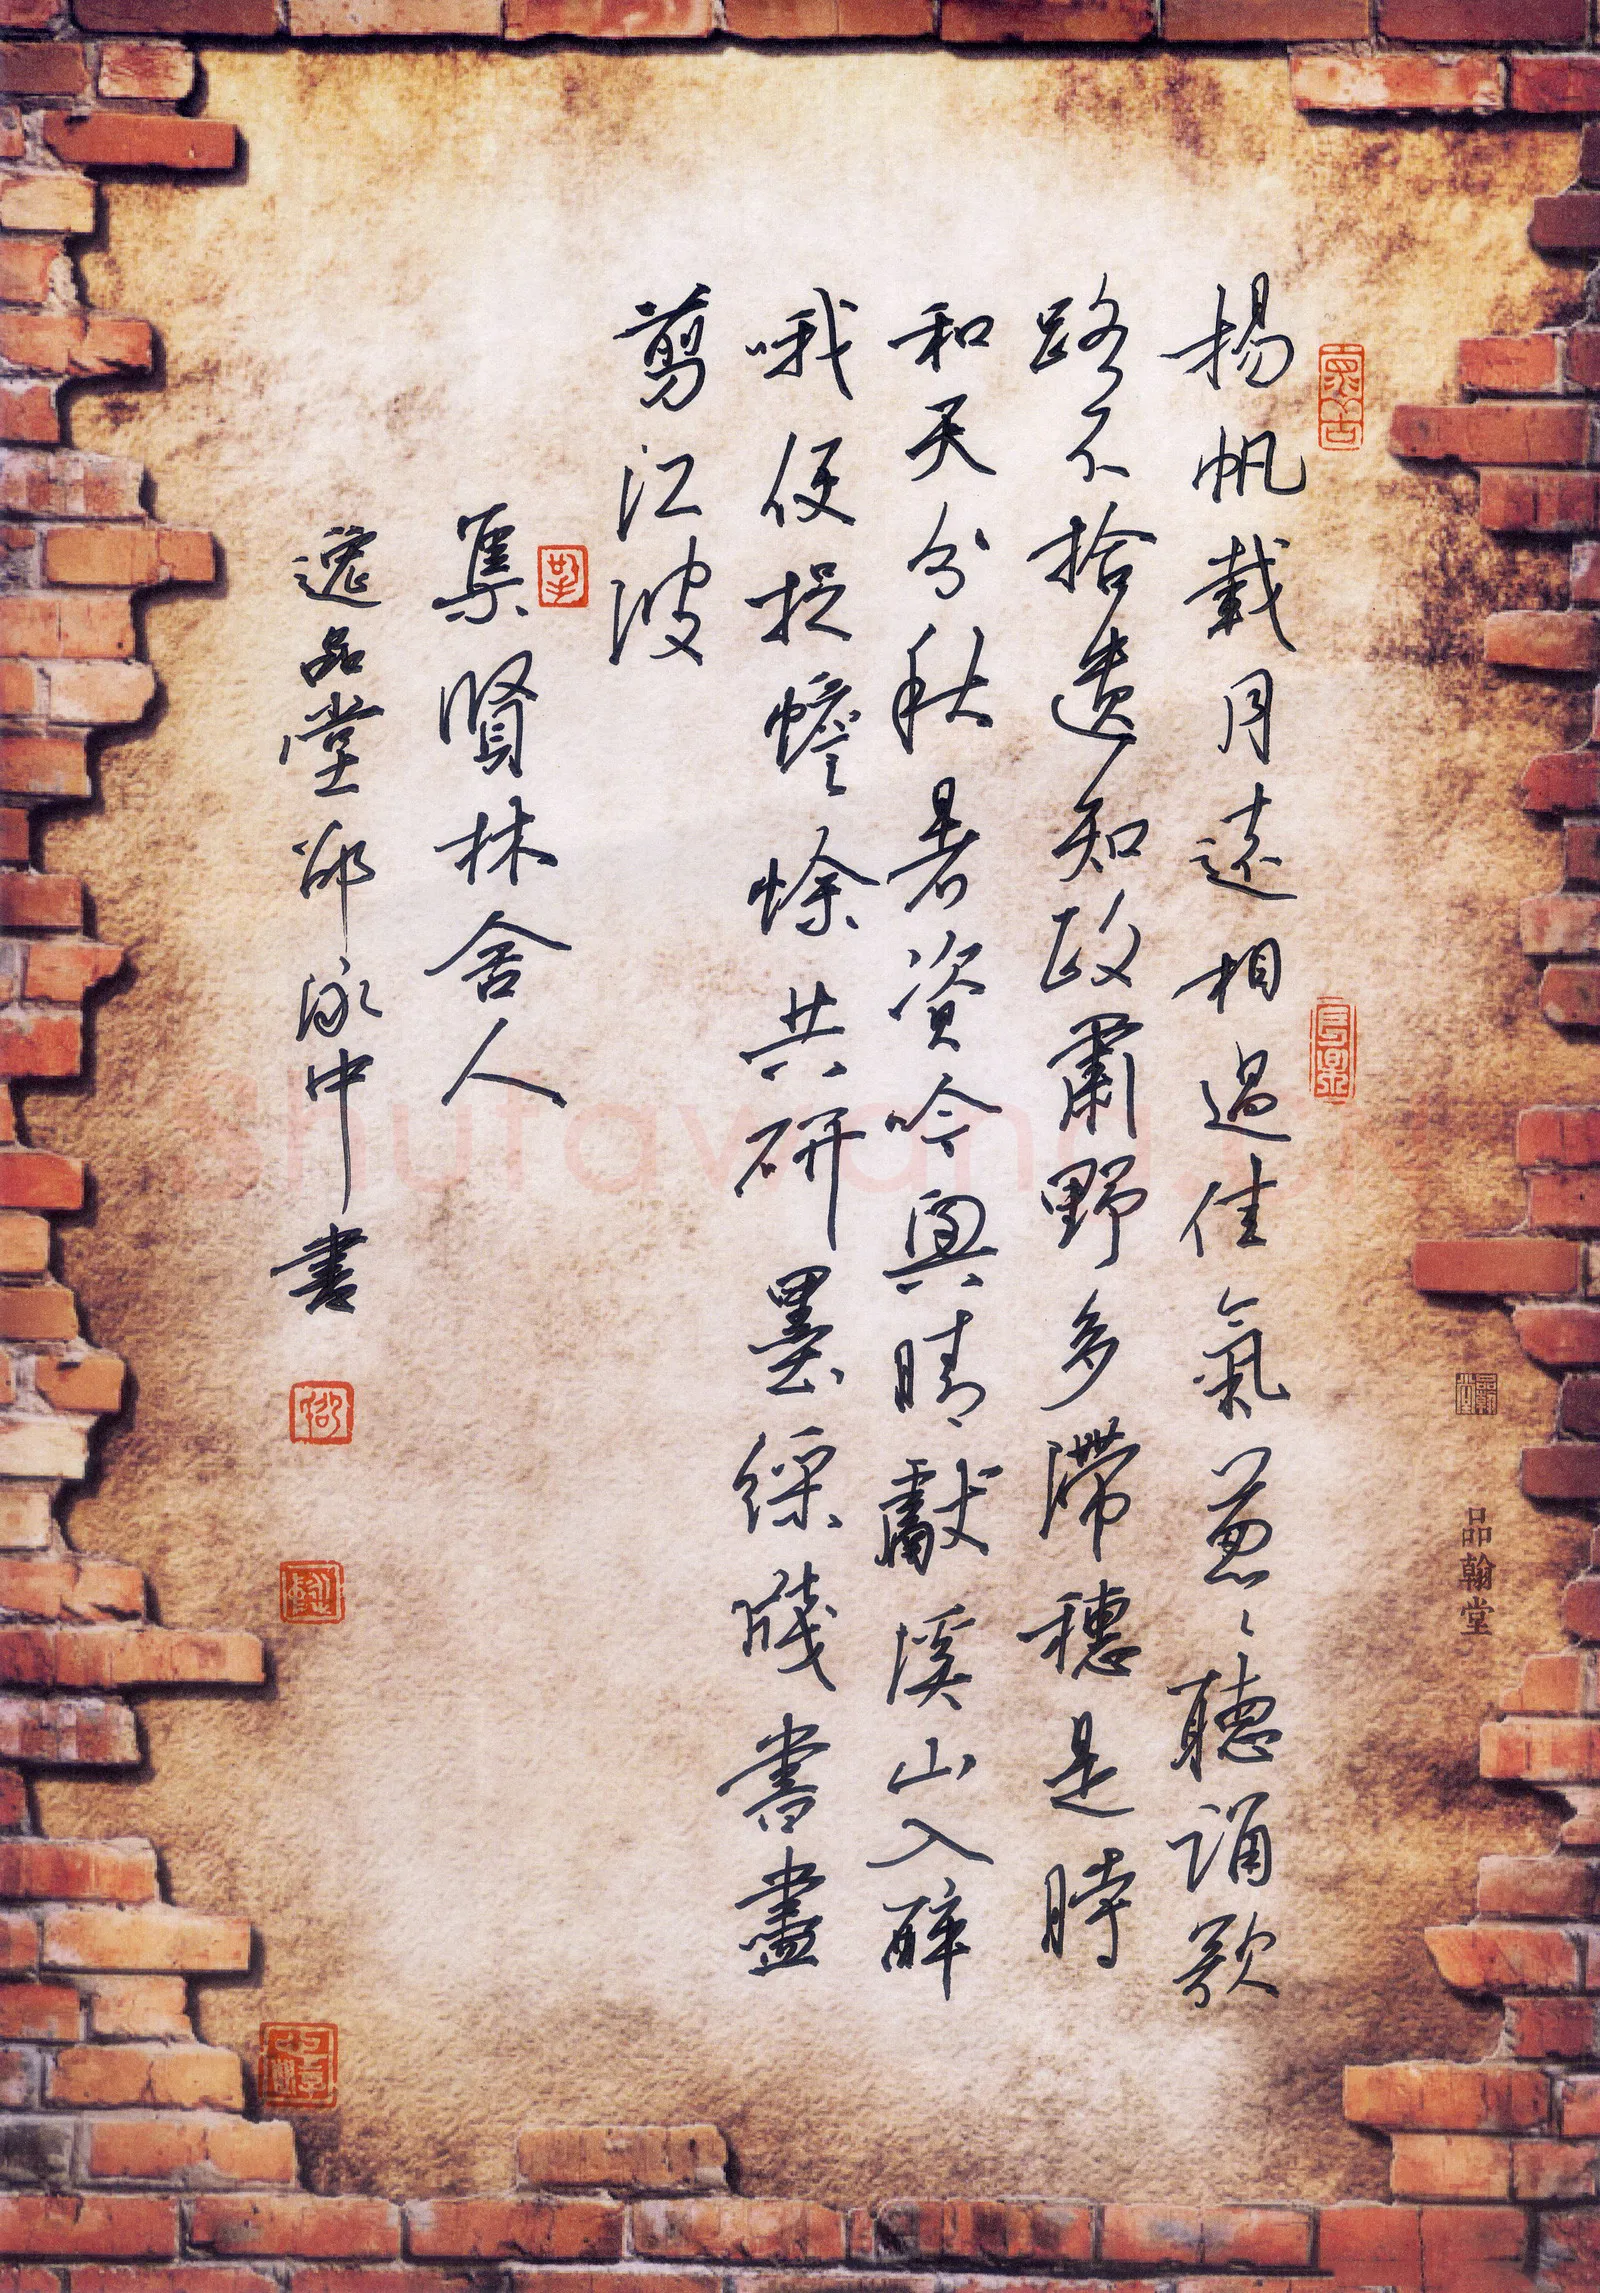 揚帆載月遠相過佳氣葱〻聽誦歌
路不拾遺知政肅野多滯穗是時
和天分秋暑資吟興晴獻溪山入醉
哦便捉蟾蜍共研墨綵牋書盡
剪江波
集賢林舍人
逸品堂邵泳中書
品翰堂